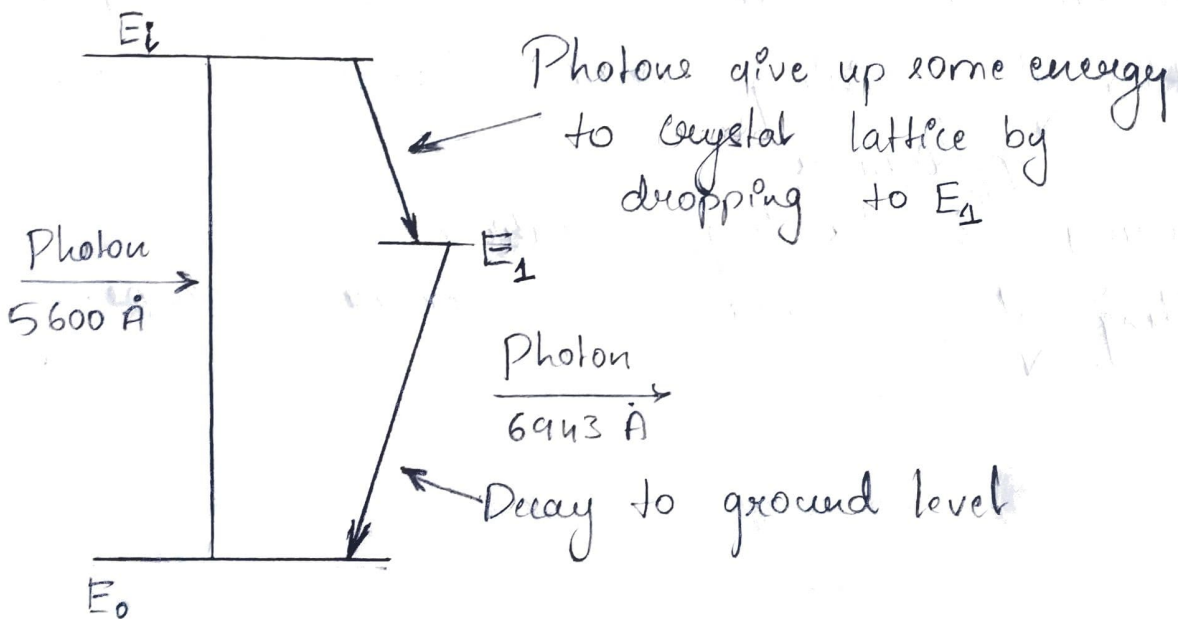 Ei
Photons give up some energy
to crystal lattice by
dropping to E1
Photon
5600 Å
E1
Photon
6943 Å
Decay to ground level
E0